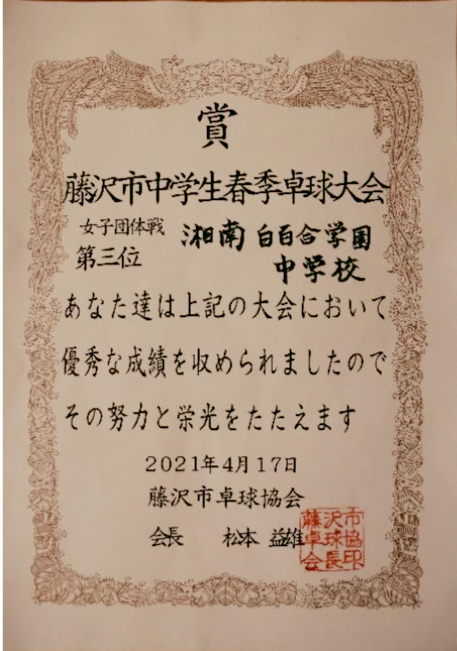 賞
藤沢市中学生春季卓球大会
女子団体戦 湘南白百合学園
第三位 中学校
あなた達は上記の大会において
優秀な成績を収められましたので
その努力と栄光をたたえます
2021年4月17日
藤沢市卓球協会
会長 松本 益雄
藤沢市
卓球協
会長印